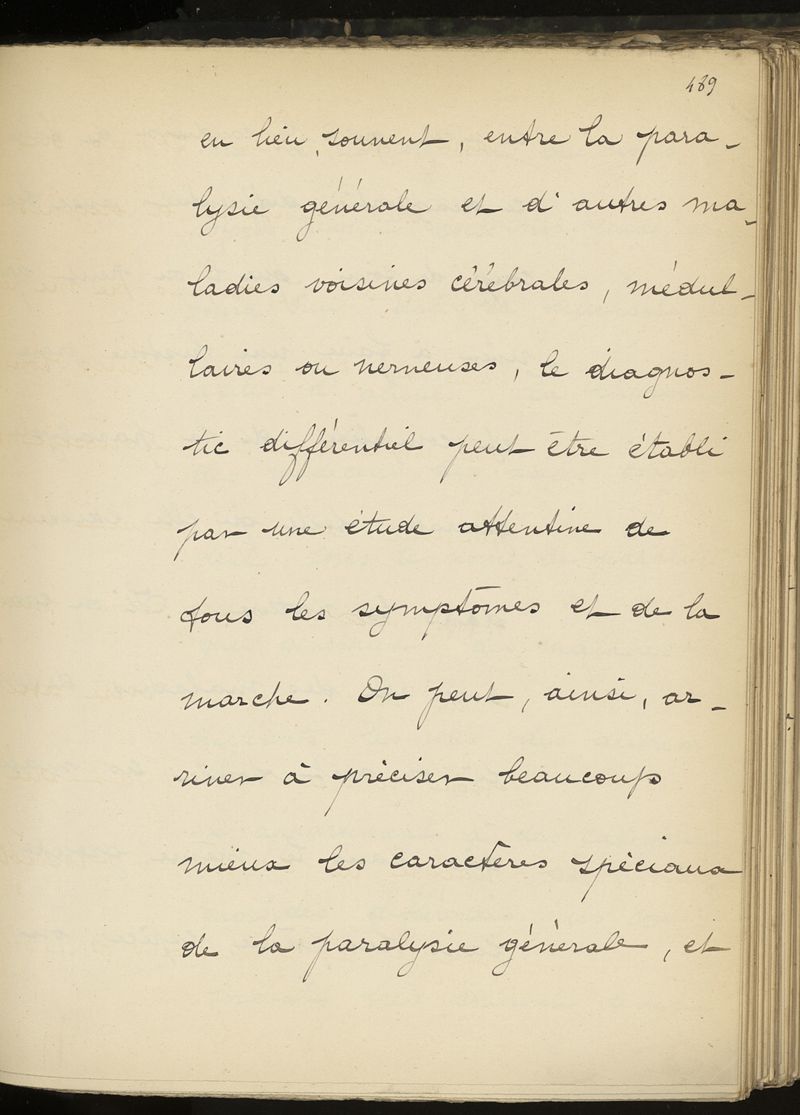 489
en lieu, souvent, entre la para-
lysie générale et d'autres ma-
ladies voisines cérébrales, médul-
laires ou nerveuses, le diagnos-
tic différentiel peut être établi
par une étude attentive de
tous les symptômes et de la
marche. On peut, ainsi, ar-
river à préciser beaucoup
mieux les caractères spéciaux
de la paralysie générale, et